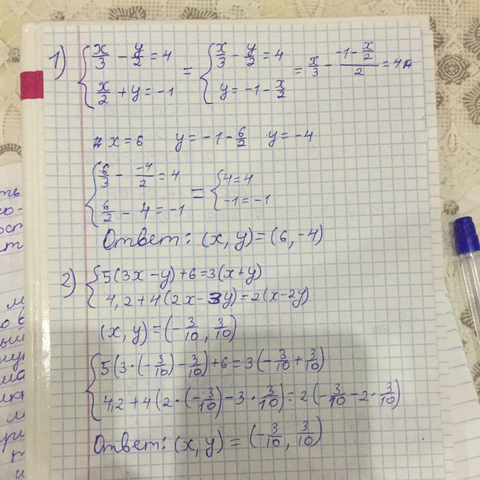 1) { x/3 - y/2 = 4 = { x/3 - y/2 = 4 = x/3 - (-1 - x/2)/2 = 4
{ x/2 + y = -1 { y = -1 - x/2
x = 6 y = -1 - 6/2 y = -4
{ 6/3 - -4/2 = 4 = { 4 = 4
{ 6/2 - 4 = -1 { -1 = -1
Ответ: (x, y) = (6, -4)
2) { 5(3x - y) + 6 = 3(x + y)
{ 4,2 + 4(2x - 3y) = 2(x - 2y)
(x, y) = (-3/10, 3/10)
{ 5(3·(-3/10) - 3/10) + 6 = 3(-3/10 + 3/10)
{ 4,2 + 4(2·(-3/10) - 3·3/10) = 2(-3/10 - 2·3/10)
Ответ: (x, y) = (-3/10, 3/10)